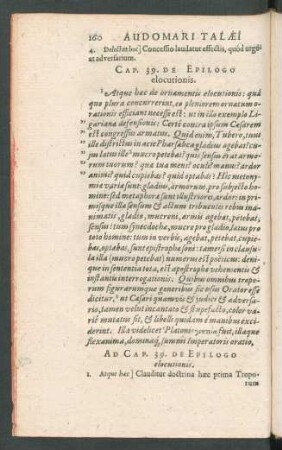 160 AUDOMARI TALÆI
4. Delectat hoc] Concessio laudatur effectis, quòd urgeat adversarium.
CAP. 39. DE EPILOGO
elocutionis.
1 Atque hæc de ornamentis elocutionis: quæ
quo plura concurrerint, eo pleniorem ornatum orationis
efficiant necesse est: ut in illo exemplo Ligariana
defensionis: Certè contra ipsum Cæsarem
est congressus armatus. Quid enim, Tubero, tuus
ille districtus in acie Pharsalica gladius agebat? cujus
latus ille mucro petebat? quis sensus erat armorum
tuorum? quæ tua mens? oculi? manus? ardor
animi? quid cupiebas? quid optabas? Hic metonymia
varia sunt: gladius, armorum, pro subjecto homine:
sed metaphora sunt illustriores, ardor: inprimisque
illa sensum & actum tribuentis rebus inanimatis,
gladio, mucroni, armis agebat, petebat,
sensus: tum synecdoche, mucro pro gladio, latus pro
toto homine: tum in verbis, agebat, petebat, cupiebas,
optabas, sunt epistrophæ soni: tamersi in clausula
illa (mucro petebat) numerus est poëticus: denique
in sententia tota, est apostrophe vehementis &
instantis interrogationis. Quibus omnibus troporum
figurarumque generibus sic usus Orator esse
dicitur, ut Cæsari quamvis & judici & adversario,
tamen velut incantato & stupefacto, color variè
mutatus sit, & libelli quidam è manibus exciderint.
Illa videlicet Platonis fuit, illaque
flexanima, dominaque, summi imperatoris oratio,
AD CAP. 39. DE EPILOGO
elocutionis.
1. Atque hæc] Clauditur doctrina hæc prima Troporum